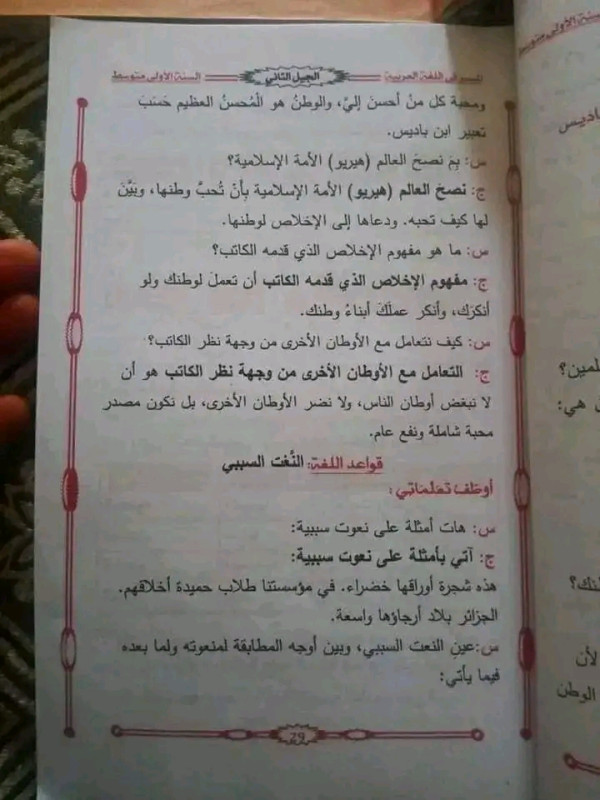 المُيسر في اللغة العربية
الجيل الثاني
السنة الأولى متوسط
ومحبة كل منْ أحسنَ إليَّ، والوطنُ هو الْمُحسنُ العظيم حَسَبَ
تعبير ابن باديس.
س: بِمَ نصحَ العالم (هيريو) الأمة الإسلامية؟
ج: نصحَ العالم (هيريو) الأمة الإسلامية بِأنْ تُحبَّ وطنها، وبَيَّنَ
لها كيف تحبه. ودعاها إلى الإخلاص لوطنها.
س: ما هو مفهوم الإخلاص الذي قدمه الكاتب؟
ج: مفهوم الإخلاص الذي قدمه الكاتب أن تعملَ لوطنك ولو
أنكرَك، وأنكر عملَكَ أبناءُ وطنك.
س: كيف نتعامل مع الأوطان الأخرى من وجهة نظر الكاتب؟
ج: التعامل مع الأوطان الأخرى من وجهة نظر الكاتب هو أن
لا نبغض أوطان الناس، ولا نضر الأوطان الأخرى، بل نكون مصدر
محبة شاملة ونفع عام.
قواعد اللغة: النَّعْت السببي
أوظف تعلماتي:
س: هات أمثلة على نعوت سببية:
ج: آتي بأمثلة على نعوت سببية:
هذه شجرة أوراقها خضراء. في مؤسستنا طلاب حميدة أخلاقهم.
الجزائر بلاد أرجاؤها واسعة.
س:عينِ النعت السببي، وبين أوجه المطابقة لمنعوته ولما بعده
فيما يأتي:
29
السنة الأولى متوسط
باديس
هي:
لأن
الوطن